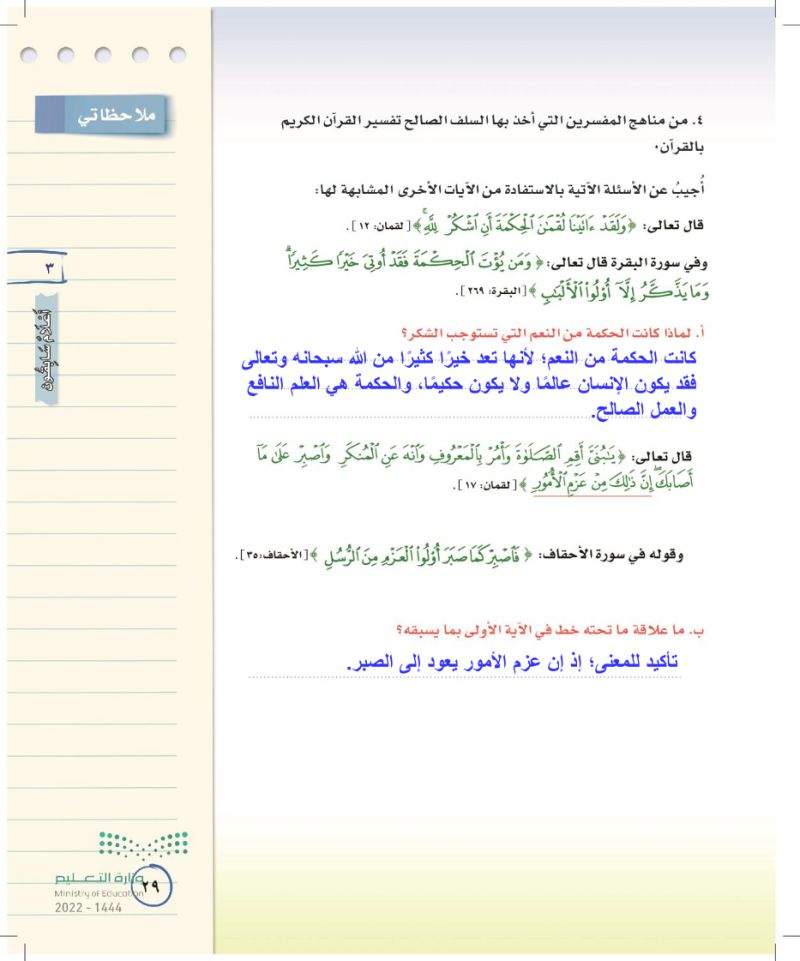 ملاحظاتي
٤. من مناهج المفسرين التي أخذ بها السلف الصالح تفسير القرآن الكريم
بالقرآن.
أُجيبُ عن الأسئلة الآتية بالاستفادة من الآيات الأخرى المشابهة لها:
قال تعالى: ﴿وَلَقَدْ ءَاتَيْنَا لُقْمَٰنَ ٱلْحِكْمَةَ أَنِ ٱشْكُرْ لِلَّهِ ۚ﴾ [لقمان: ١٢].
وفي سورة البقرة قال تعالى: ﴿وَمَن يُؤْتَ ٱلْحِكْمَةَ فَقَدْ أُوتِىَ خَيْرًا كَثِيرًا ۗ
وَمَا يَذَّكَّرُ إِلَّآ أُو۟لُوا۟ ٱلْأَلْبَٰبِ﴾ [البقرة: ٢٦٩].
٣
أعلام سابقون
أ. لماذا كانت الحكمة من النعم التي تستوجب الشكر؟
كانت الحكمة من النعم؛ لأنها تعد خيرًا كثيرًا من الله سبحانه وتعالى
فقد يكون الإنسان عالمًا ولا يكون حكيمًا، والحكمة هي العلم النافع
والعمل الصالح.
قال تعالى: ﴿يَٰبُنَىَّ أَقِمِ ٱلصَّلَوٰةَ وَأْمُرْ بِٱلْمَعْرُوفِ وَٱنْهَ عَنِ ٱلْمُنكَرِ وَٱصْبِرْ عَلَىٰ مَآ
أَصَابَكَ ۖ إِنَّ ذَٰلِكَ مِنْ عَزْمِ ٱلْأُمُورِ﴾ [لقمان: ١٧].
وقوله في سورة الأحقاف: ﴿فَٱصْبِرْ كَمَا صَبَرَ أُو۟لُوا۟ ٱلْعَزْمِ مِنَ ٱلرُّسُلِ﴾ [الأحقاف: ٣٥].
ب. ما علاقة ما تحته خط في الآية الأولى بما يسبقه؟
تأكيد للمعنى؛ إذ إن عزم الأمور يعود إلى الصبر.
وزارة التعليم
Ministry of Education
2022 - 1444
٢٩